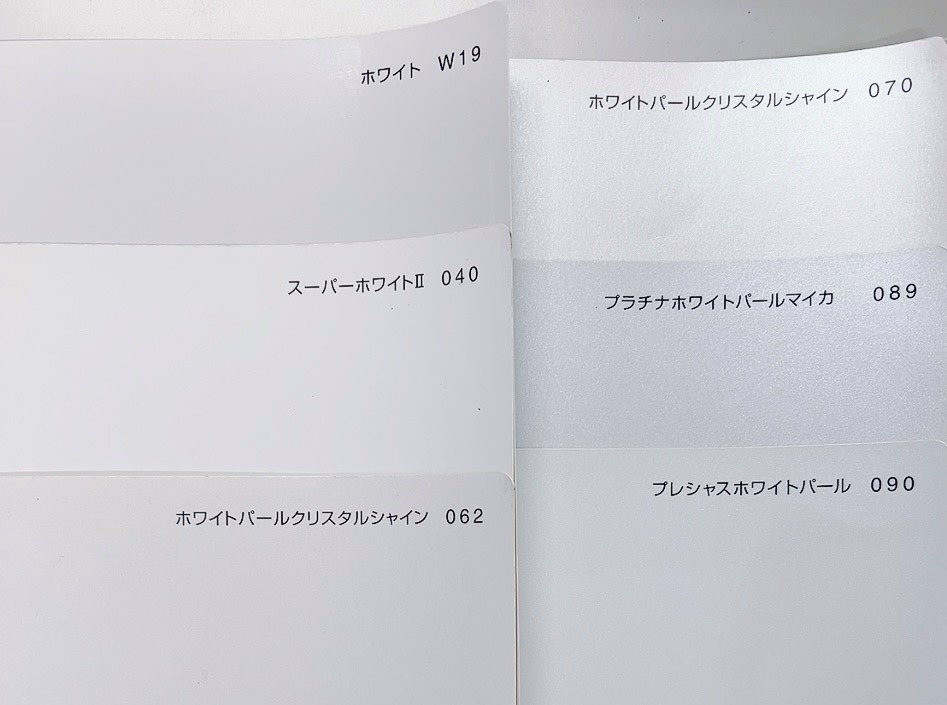 ホワイト W19
スーパーホワイトⅡ 040
ホワイトパールクリスタルシャイン 062
ホワイトパールクリスタルシャイン 070
プラチナホワイトパールマイカ 089
プレシャスホワイトパール 090